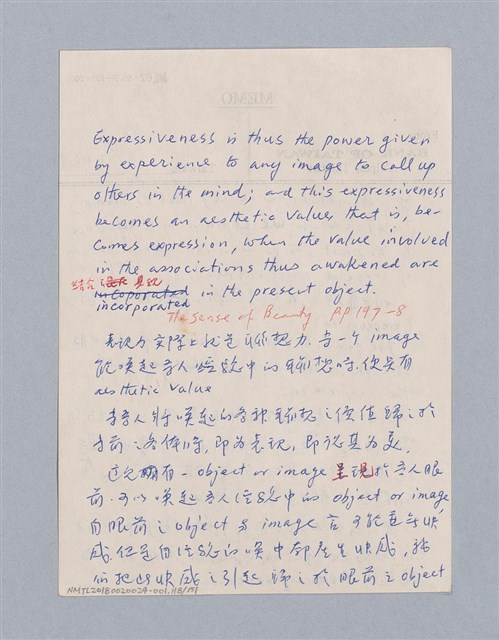 MEMO
Expressiveness is thus the power given
by experience to any image to call up
others in the mind; and this expressiveness
becomes an aesthetic value, that is, be-
comes expression, when the value involved
in the associations thus awakened are
結合 具現
incoporated
incorporated in the present object.
The sense of Beauty pp 197-8
表現力 文學上就是聯想力. 當一个 image
能喚起吾人經驗中的聯想時, 便具有
aesthetic value
當吾人將喚起的各種聯想之價值歸之於
當前之客體時, 即為表現, 即認其為美.
有一 object or image 呈現於吾人眼
前. 可以喚起吾人經驗中的 object or image
自眼前之 object 與 image 言 可能並無快
感. 但是自經驗的喚中却產生快感, 我
們把此快感之引起歸之於眼前之 object
NMTL20180020024-001